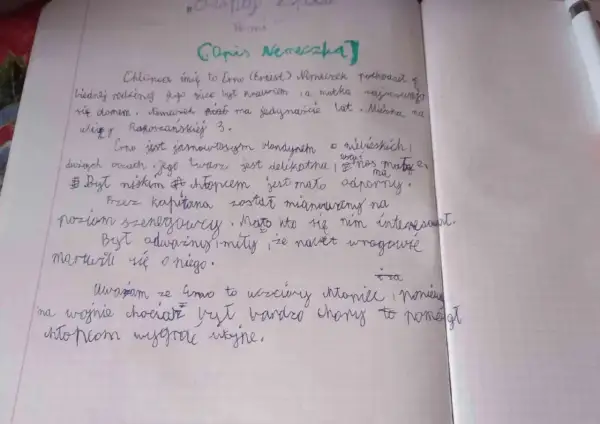 [Opis Nemeczka]
Chłopiec imię to Erno (Ernest) Nemeczek pochodził z
biednej rodziny jego ojciec był krawcem, a matka zajmowała
się domem. Nemeczek ma jedynaście lat. Mieszka na
ulicy Rakoszańskiej 3.
Erno jest jasnowłosym blondynem o niebieskich,
dużych oczach, jego twarz jest delikatna,
Był niskim chłopcem jest mało odporny.
Przez kapitana został mianowany na
poziom szeregowcy. Mało kto się nim interesował.
Był odważny i miły, że nawet wrogowie
martwili się o niego.
Uważam że Erno to uczciwy chłopiec,
na wojnie chociaż był bardzo chory to pomógł
chłopcom wygrać wojne.